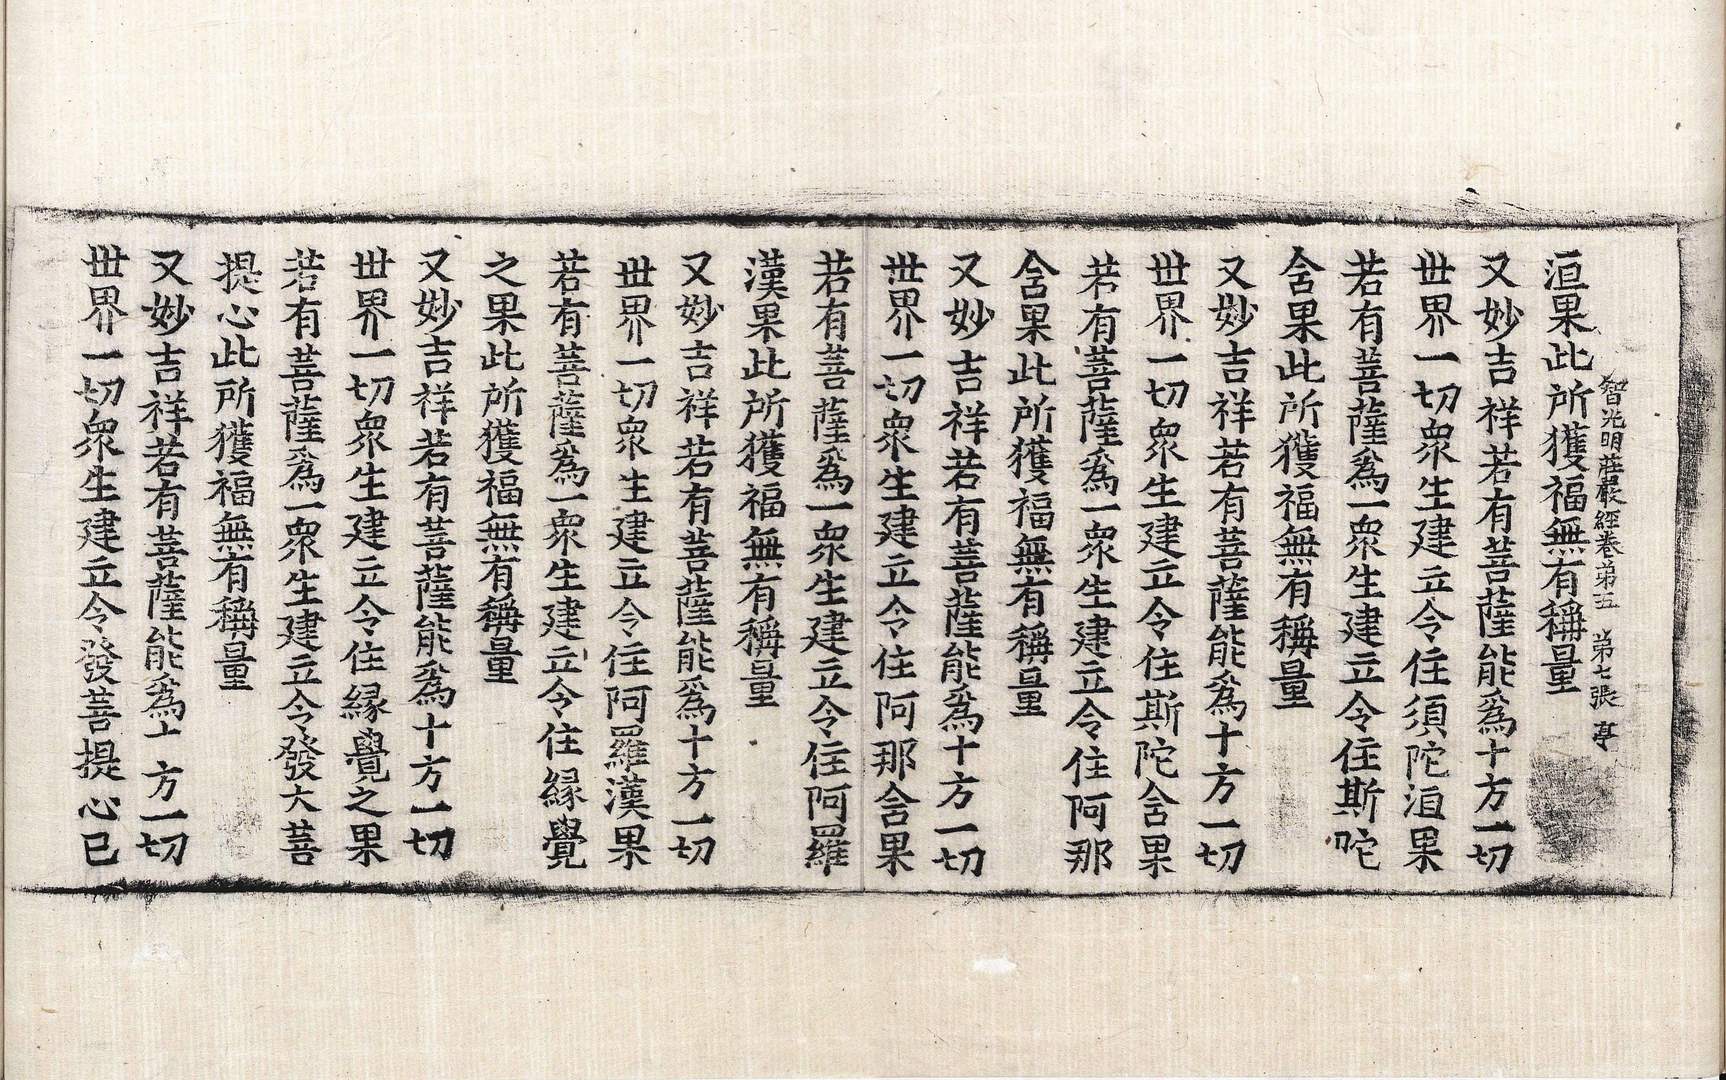 智光明莊嚴經卷第五 第七張 亭
洹果此所獲福無有稱量
又妙吉祥若有菩薩能爲十方一切
世界一切衆生建立令住須陀洹果
若有菩薩爲一衆生建立令住斯陀
含果此所獲福無有稱量
又妙吉祥若有菩薩能爲十方一切
世界一切衆生建立令住斯陀含果
若有菩薩爲一衆生建立令住阿那
含果此所獲福無有稱量
又妙吉祥若有菩薩能爲十方一切
世界一切衆生建立令住阿那含果
若有菩薩爲一衆生建立令住阿羅
漢果此所獲福無有稱量
又妙吉祥若有菩薩能爲十方一切
世界一切衆生建立令住阿羅漢果
若有菩薩爲一衆生建立令住緣覺
之果此所獲福無有稱量
又妙吉祥若有菩薩能爲十方一切
世界一切衆生建立令住緣覺之果
若有菩薩爲一衆生建立令發大菩
提心此所獲福無有稱量
又妙吉祥若有菩薩能爲十方一切
世界一切衆生建立令發菩提心已